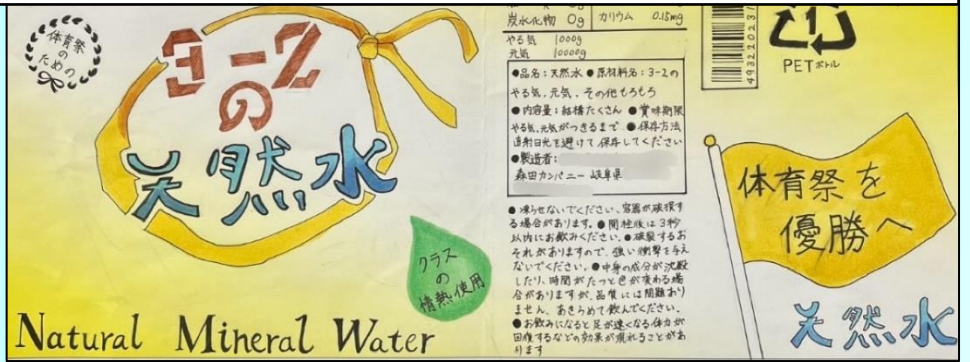 体育祭
のための
3-2
の
天然水
クラス
の
情熱使用
Natural Mineral Water
炭水化物 0g
カリウム 0.15mg
やる気 1000g
元気 10000g
●品名:天然水 ●原材料名:3-2の
やる気、元気、その他もろもろ
●内容量:結構たくさん ●賞味期限
やる気、元気がつきるまで ●保存方法
直射日光を避けて保存してください
●製造者:
森田カンパニー 岐阜県
●凍らせないでください、容器が破損す
る場合があります。●開栓後は3秒
以内にお飲みください。●破裂するお
それがありますので、強い衝撃を与え
ないでください。●中身の成分が沈殿
したり、時間がたつと色が変わる場
合がありますが、品質には問題あり
ません。あきらめて飲んでください。
●お飲みになると足が速くなる、体力が
回復するなどの効果が現れることがあ
ります
PETボトル
1
体育祭を
優勝へ
天然水